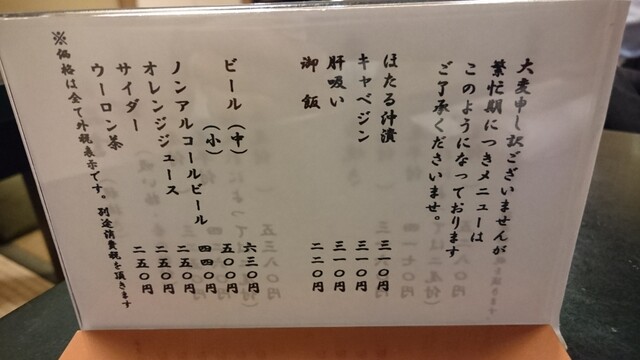 大変申し訳ございませんが
繁忙期につきメニューは
このようになっております
ご了承くださいませ。
ほたる沖漬 三一〇円
キャベジン 三一〇円
肝吸い 三一〇円
御飯 二二〇円
ビール（中） 六三〇円
（小） 五〇〇円
ノンアルコールビール 四四〇円
オレンジジュース 二五〇円
サイダー 二五〇円
ウーロン茶 二五〇円
※価格は全て外税表示です。別途消費税を頂きます